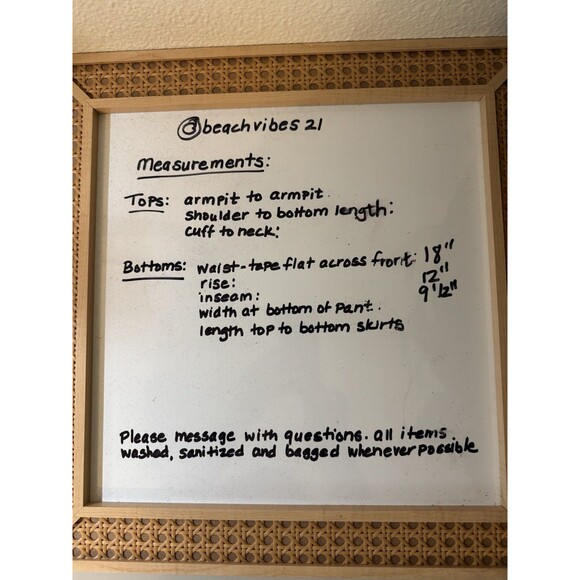 @beachvibes 21
Measurements:
Tops: armpit to armpit.
shoulder to bottom length:
cuff to neck:
Bottoms: waist-tape flat across front: 18"
rise: 12"
inseam: 9 1/2"
width at bottom of pant.
length top to bottom skirts
Please message with questions. all items
washed, sanitized and bagged whenever possible